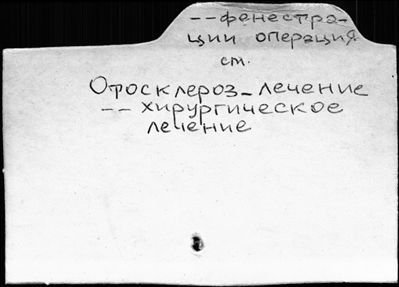 --фенестра-
ции операция
см.
Отосклероз-лечение
-- хирургическое
лечение